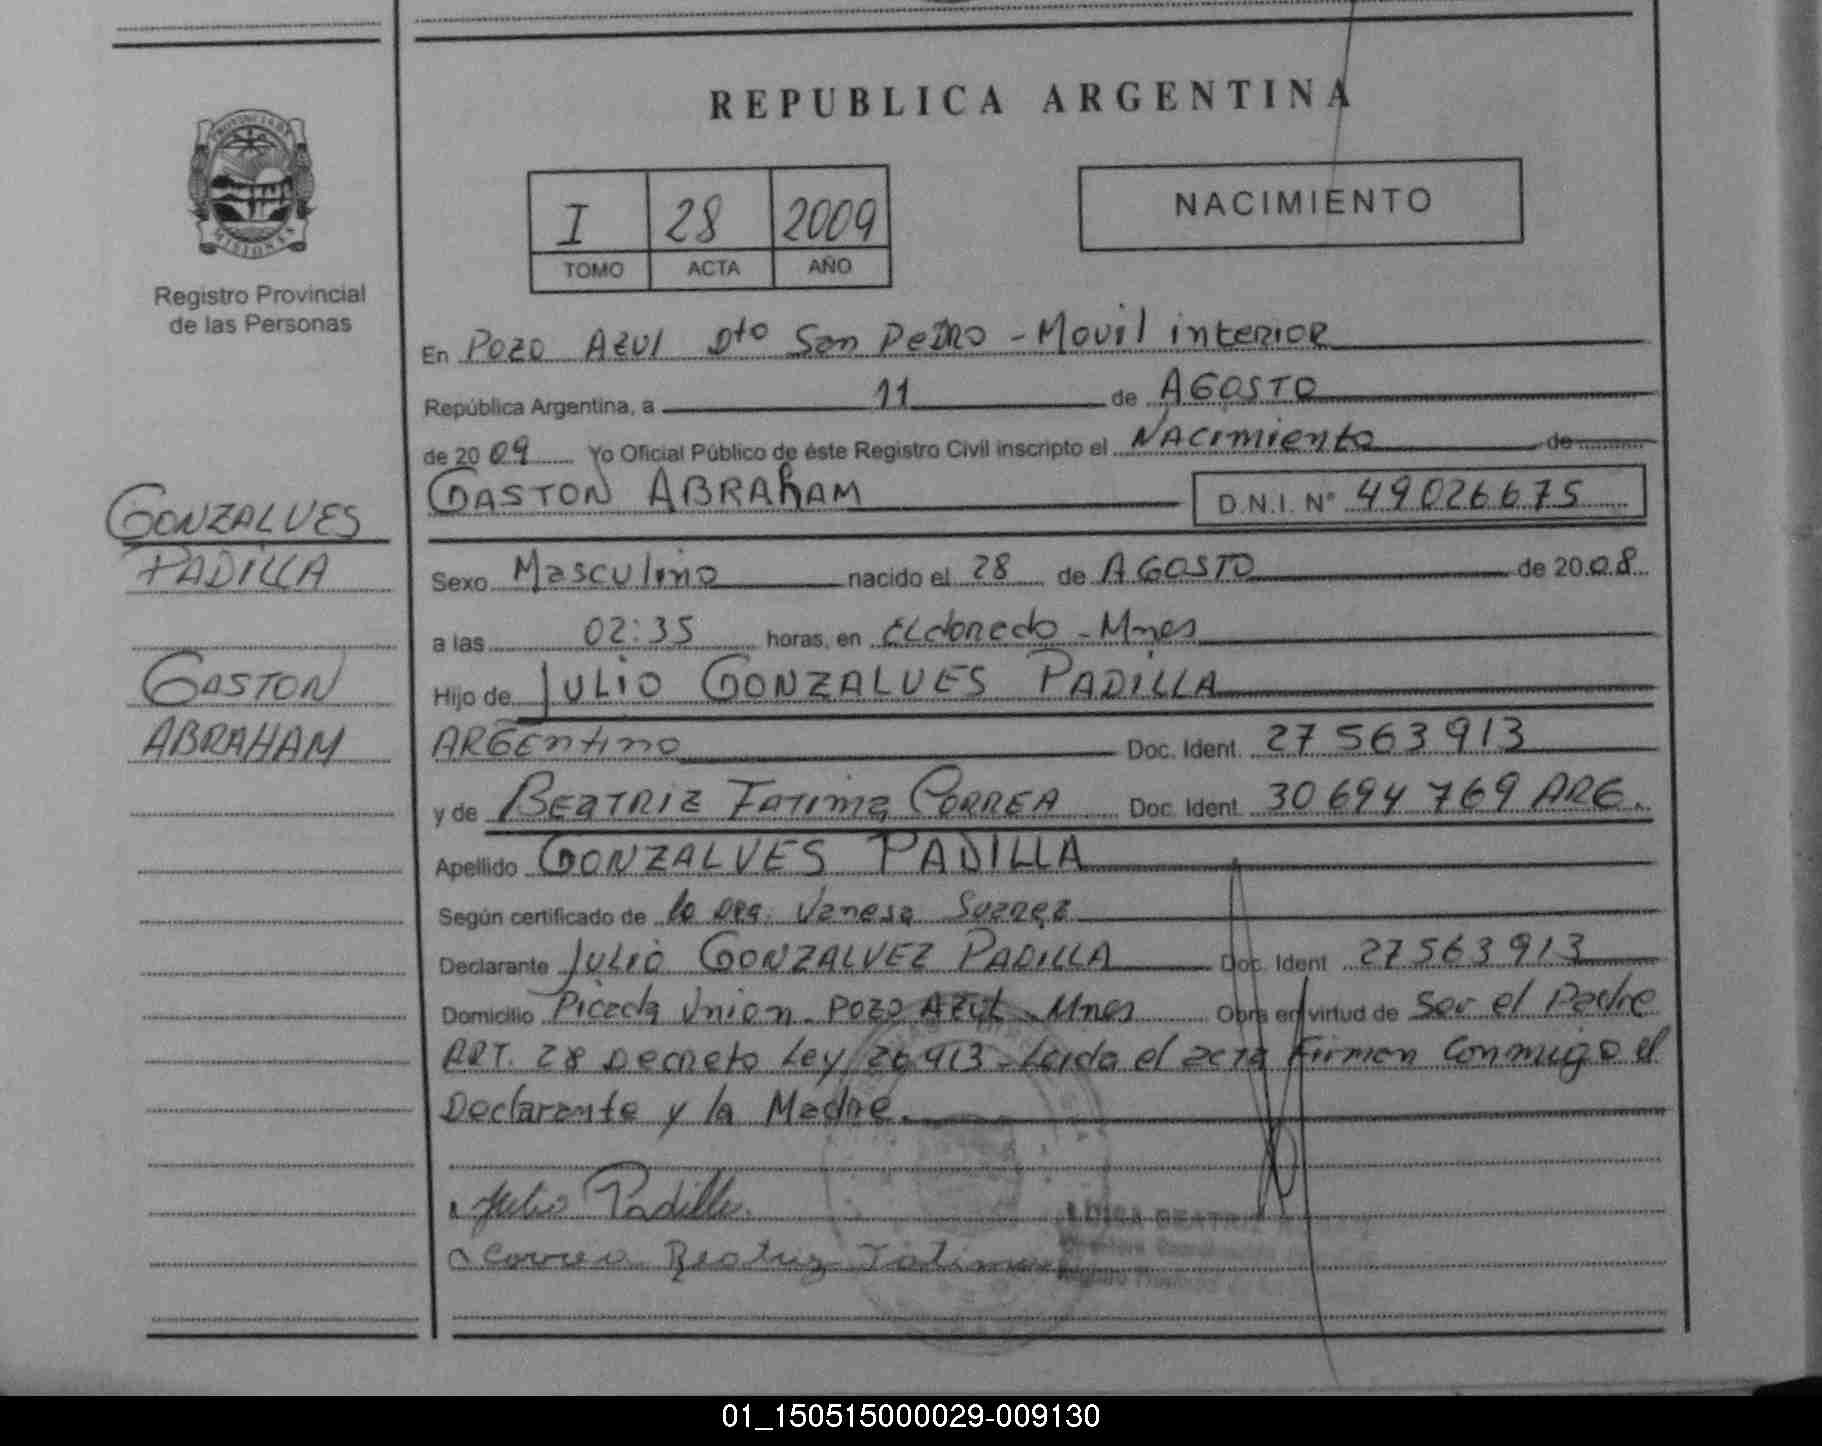 REPUBLICA ARGENTINA
PROVINCIA DE
MISIONES
Registro Provincial
de las Personas
I 28 2009
TOMO ACTA AÑO
NACIMIENTO
En Pozo Azul Dto San Pedro - Movil interior
República Argentina, a 11 de AGOSTO
de 2009 Yo Oficial Público de éste Registro Civil inscripto el Nacimiento de
GASTON ABRAHAM D.N.I. N° 49026675
GONZALVES
PADILLA
GASTON
ABRAHAM
Sexo Masculino nacido el 28 de AGOSTO de 2008
a las 02:35 horas, en Eldorado - Mnes
Hijo de JULIO GONZALVES PADILLA
ARGENtino Doc. Ident. 27 563 913
y de BEATRIZ FATIMA CORREA Doc. Ident. 30 694 769 ARG.
Apellido GONZALVES PADILLA
Según certificado de la Dra. Vanesa Suarez
Declarante JULIO GONZALVEZ PADILLA Doc. Ident 27563913
Domicilio Picada Union - POZO AZUL - Mnes Obra en virtud de Ser el Padre
ART. 28 Decreto Ley 26.413 - Leida el acta Firman Conmigo el
Declarante y la Madre.
Julio Padilla
Correa Beatriz Fatima
01_150515000029-009130